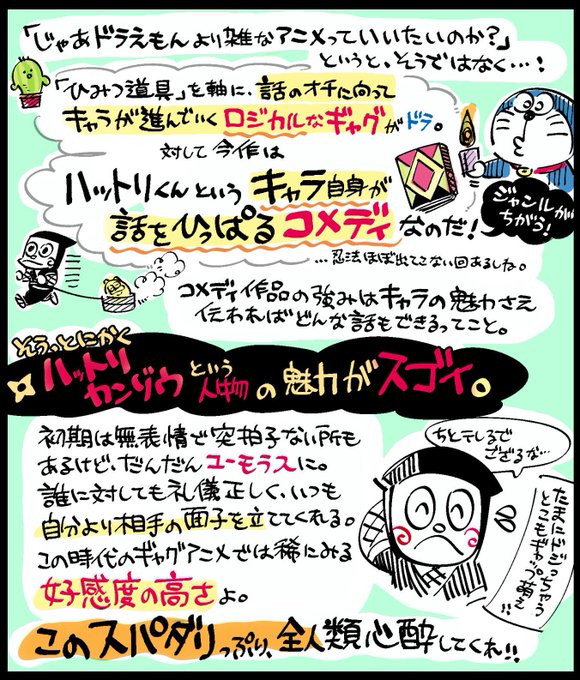 「じゃあドラえもんより雑なアニメっていいたいのか？」
というと、そうではなく…！
「ひみつ道具」を軸に、話のオチに向って
キャラが進んでいくロジカルなギャグがドラ。
対して今作は
ハットリくんというキャラ自身が
話をひっぱるコメディなのだ！
ジャンルが
ちがう！
…忍法ほぼ出てこない回あるしな。
コメディ作品の強みはキャラの魅力さえ
伝わればどんな話もできるってこと。
そうっとにかく
ハットリ
カンゾウという人物の魅力がスゴイ。
初期は無表情で突拍子ない所も
あるけど、だんだんユーモラスに。
誰に対しても礼儀正しく、いつも
自分より相手の面子を立ててくれる。
この時代のギャグアニメでは稀にみる
好感度の高さよ。
ちとテレるで
ござるな…
たまにドジっちゃう
とこもギャップ萌え!!
このスパダリっぷり、全人類心酔してくれ!!